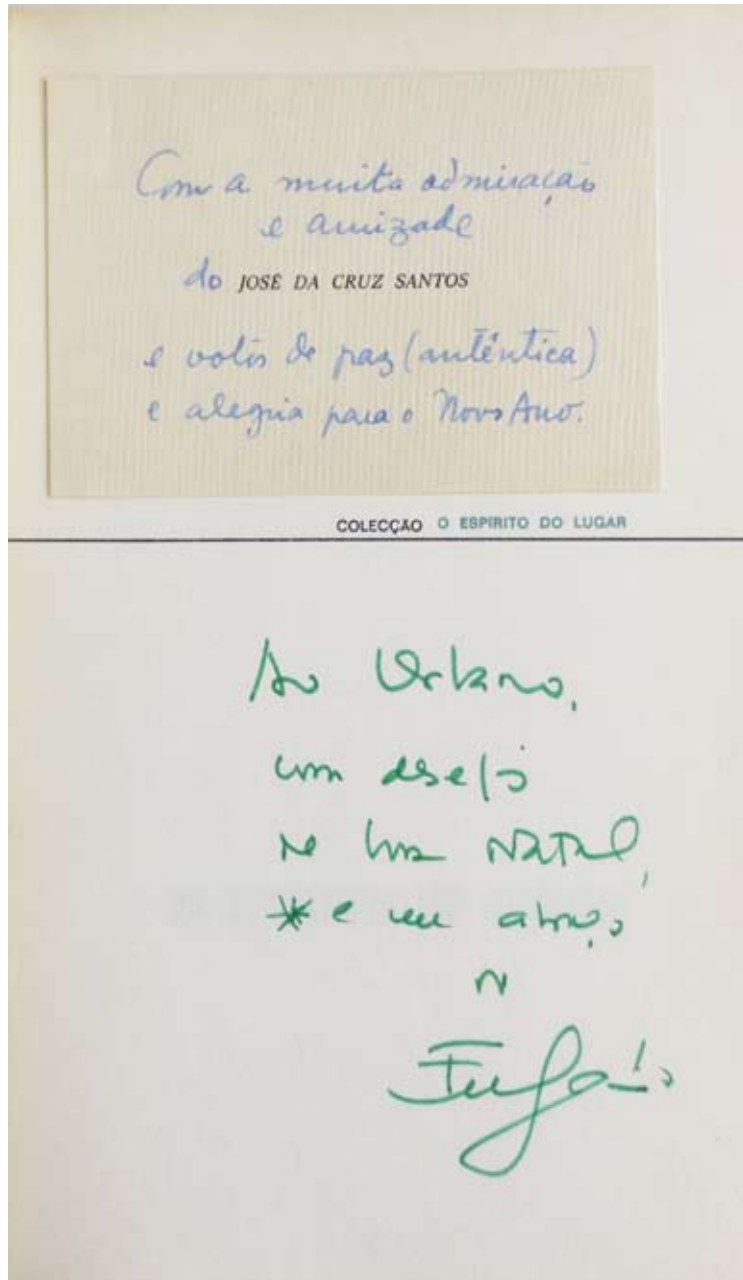 Com a muita admiração
e amizade
do JOSÉ DA CRUZ SANTOS
e votos de paz (autêntica)
e alegria para o Novo Ano.
COLECÇÃO O ESPIRITO DO LUGAR
Ao Urbano,
com desejos
de bom Natal,
* e um abraço